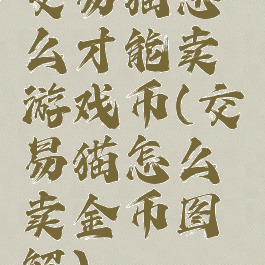 交易猫怎
么才能卖
游戏币(交
易猫怎么
卖金币图
解)